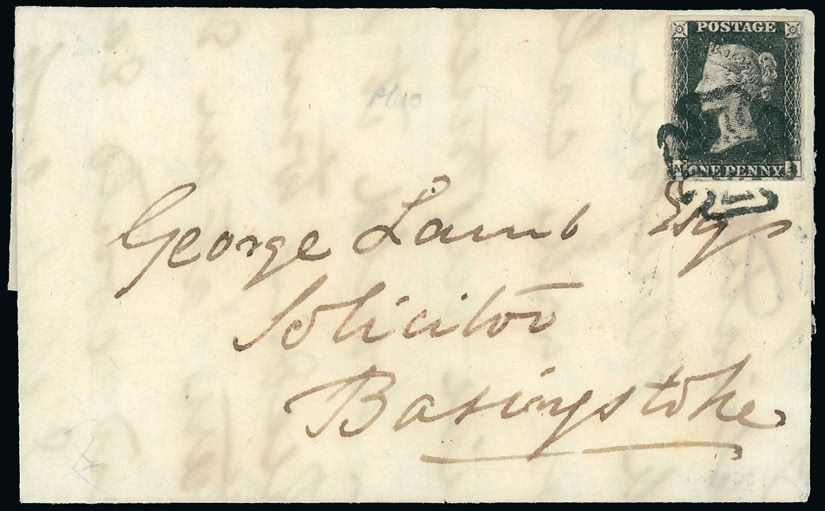 POSTAGE
ONE PENNY
Pl 10
George Lamb Esqr
Solicitor
Basingstoke